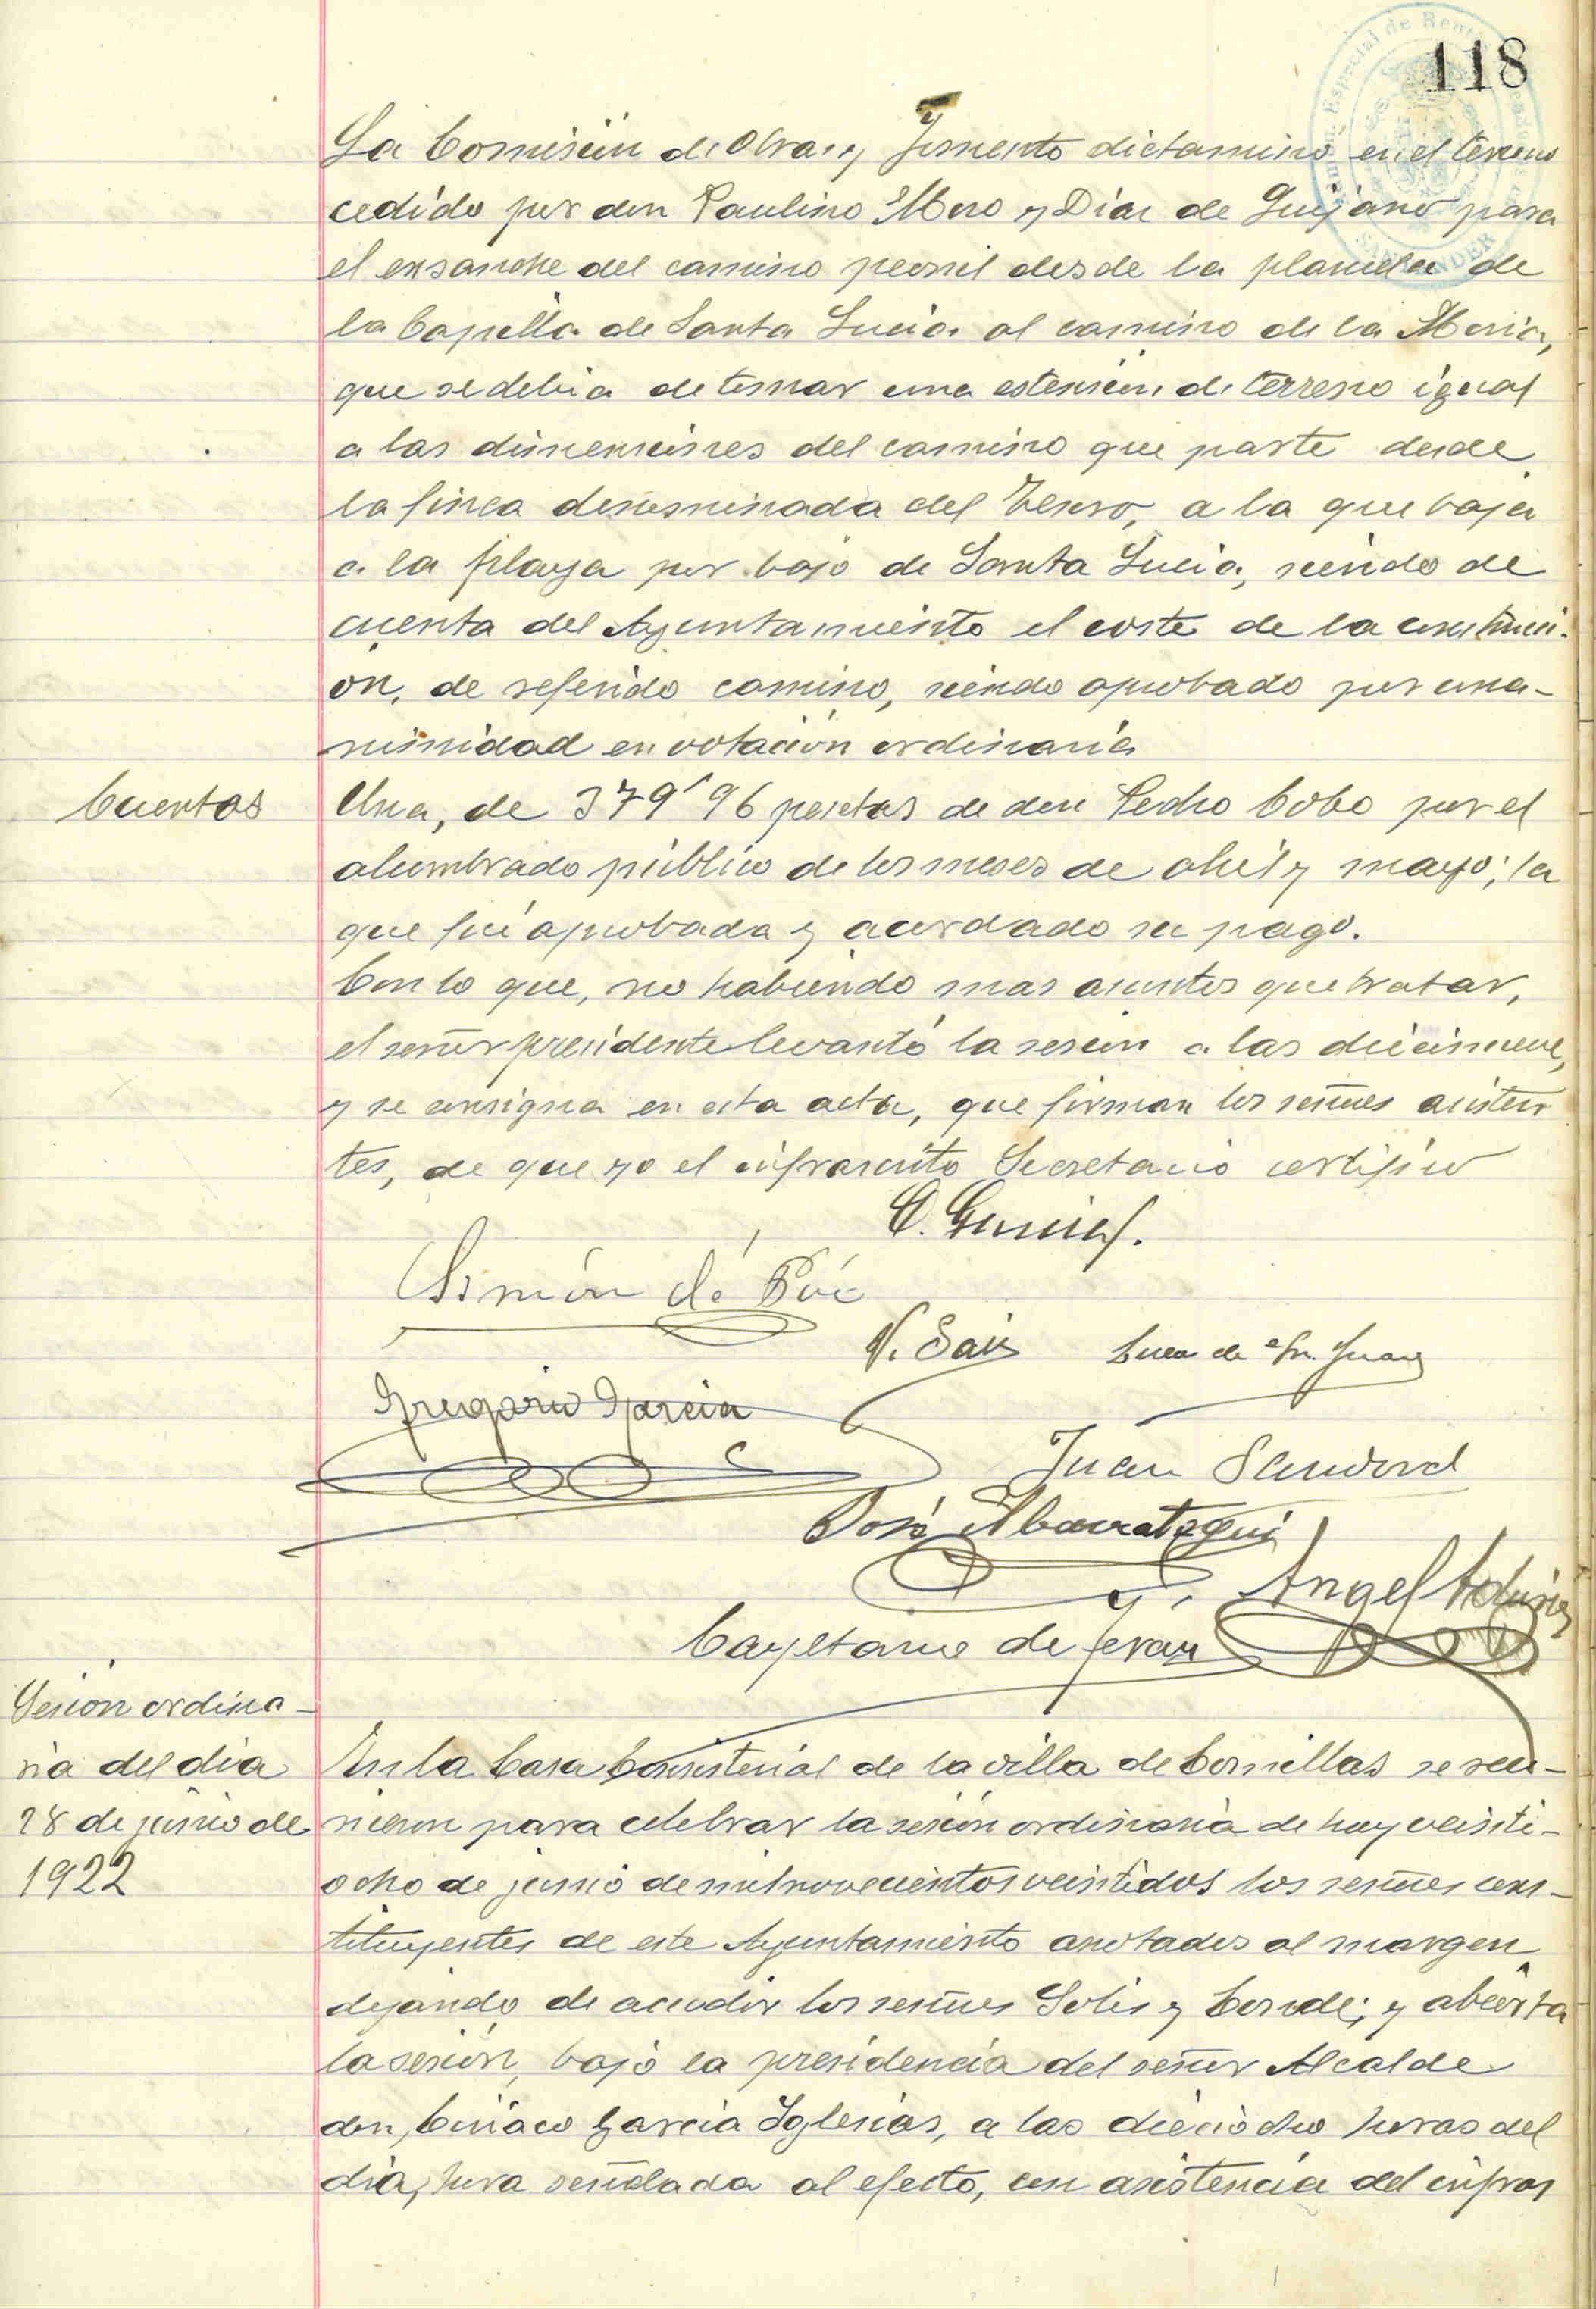 118
La Comisión de Obras y Fomento dictaminó en el terreno
cedido por don Paulino Moro y Díaz de Quijano para
el ensanche del camino peonil desde la planicie de
la Capilla de Santa Lucia al camino de la
que se debia de tomar una estension de terreno igual
a las dimensiones del camino que parte desde
la finca denominada del a la que baja
a la playa por bajo de Santa Lucia, siendo de
cuenta del Ayuntamiento el coste de la construcci-
on, de referido camino, siendo aprobado por una-
nimidad en votación ordinaria
Cuentas
Una, de 379'96 pesetas de don Pedro Cobo por el
alumbrado público de los meses de abril y mayo; la
que fué aprobada y acordado su pago.
Con lo que, no habiendo mas asuntos que tratar,
el señor presidente levantó la sesión a las diecinueve,
y se consigna en esta acta, que firman los señores asisten
tes, de que yo el infrascrito Secretario certifico
C. García
Simón de Póo
V. Saiz Lucas de Sn. Juan
Gregorio Garcia
Juan Sandoval
José Abarrategui
Angel
Cayetano de Teran
Sesion ordina-
ria del dia
28 de junio de
1922
En la Casa Consistorial de la villa de Comillas se reu-
nieron para celebrar la sesión ordinaria de hoy veinti-
ocho de junio de mil novecientos veintidos los señores cons-
tituyentes de este Ayuntamiento anotados al margen
dejando de acudir los señores Solis y Conde; y abierta
la sesión, bajo la presidencia del señor Alcalde
don Ciriaco García Iglesias, a las dieciocho horas del
dia, hora señalada al efecto, con asistencia del infras